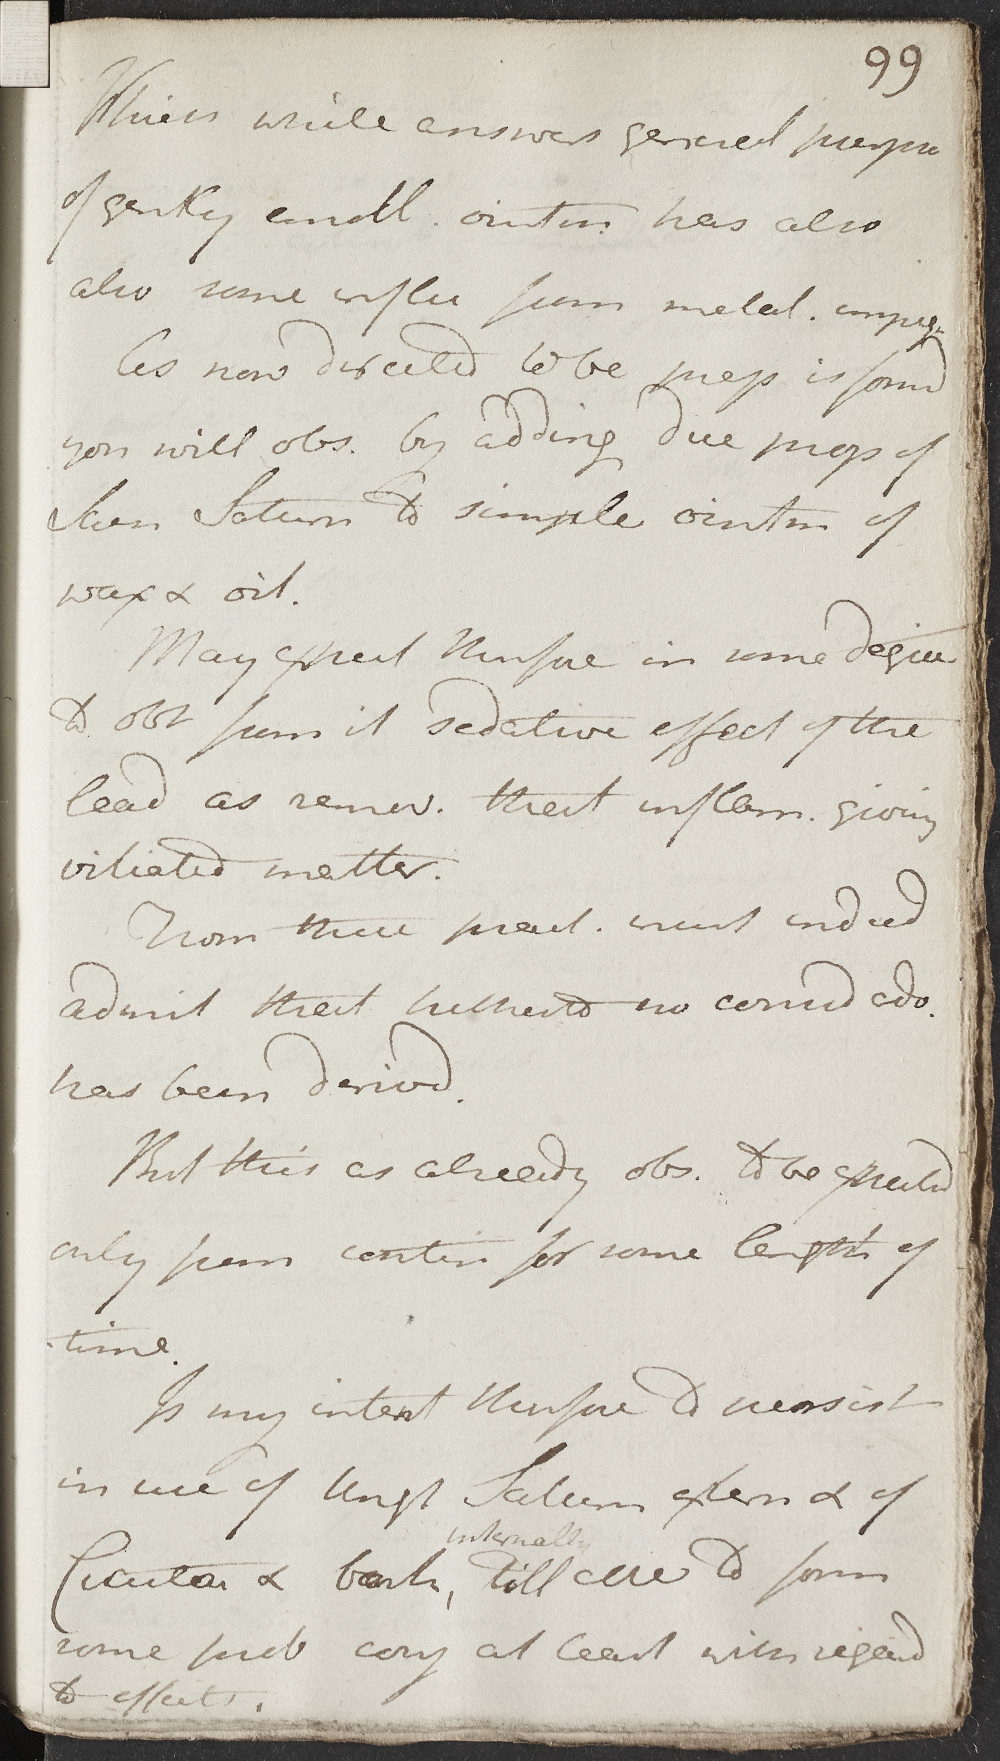 99
Which while answers general purpose
of gently emoll. ointm. has also
also some influ from metal. impregn
As now directed to be prep is formd
you will obs. by adding due prop of
Sacn Saturn to simple ointm of
wax & oil.
May expect therefore in some degree
to obt from it sedative effect of the
lead as remov. that inflam. giving
vitiated matter.
From these pract. must indeed
admit that hitherto no consid adv.
has been derivd.
But this as already obs. to be expected
only from contin for some length of
time.
Is my intent therefore to persist
in use of Ungt Saturn extern & of
internally
Cicuta & bark, till able to form
some prob conj at least with regard
to effects.